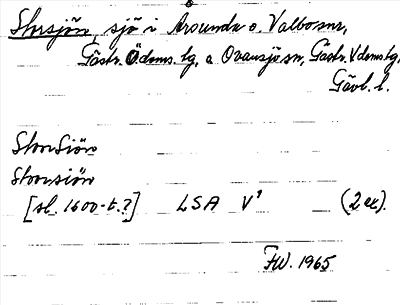 Storsjön, sjö i Årsunda o. Valbo snr,
Gästr. Ö doms. lg, o. Ovansjö sn, Gästr. V doms. lg,
Gävl. l.
StoorSiön
Stoorsiön
[sl. 1600-t.?] LSA V¹ (2 ex).
FW. 1965